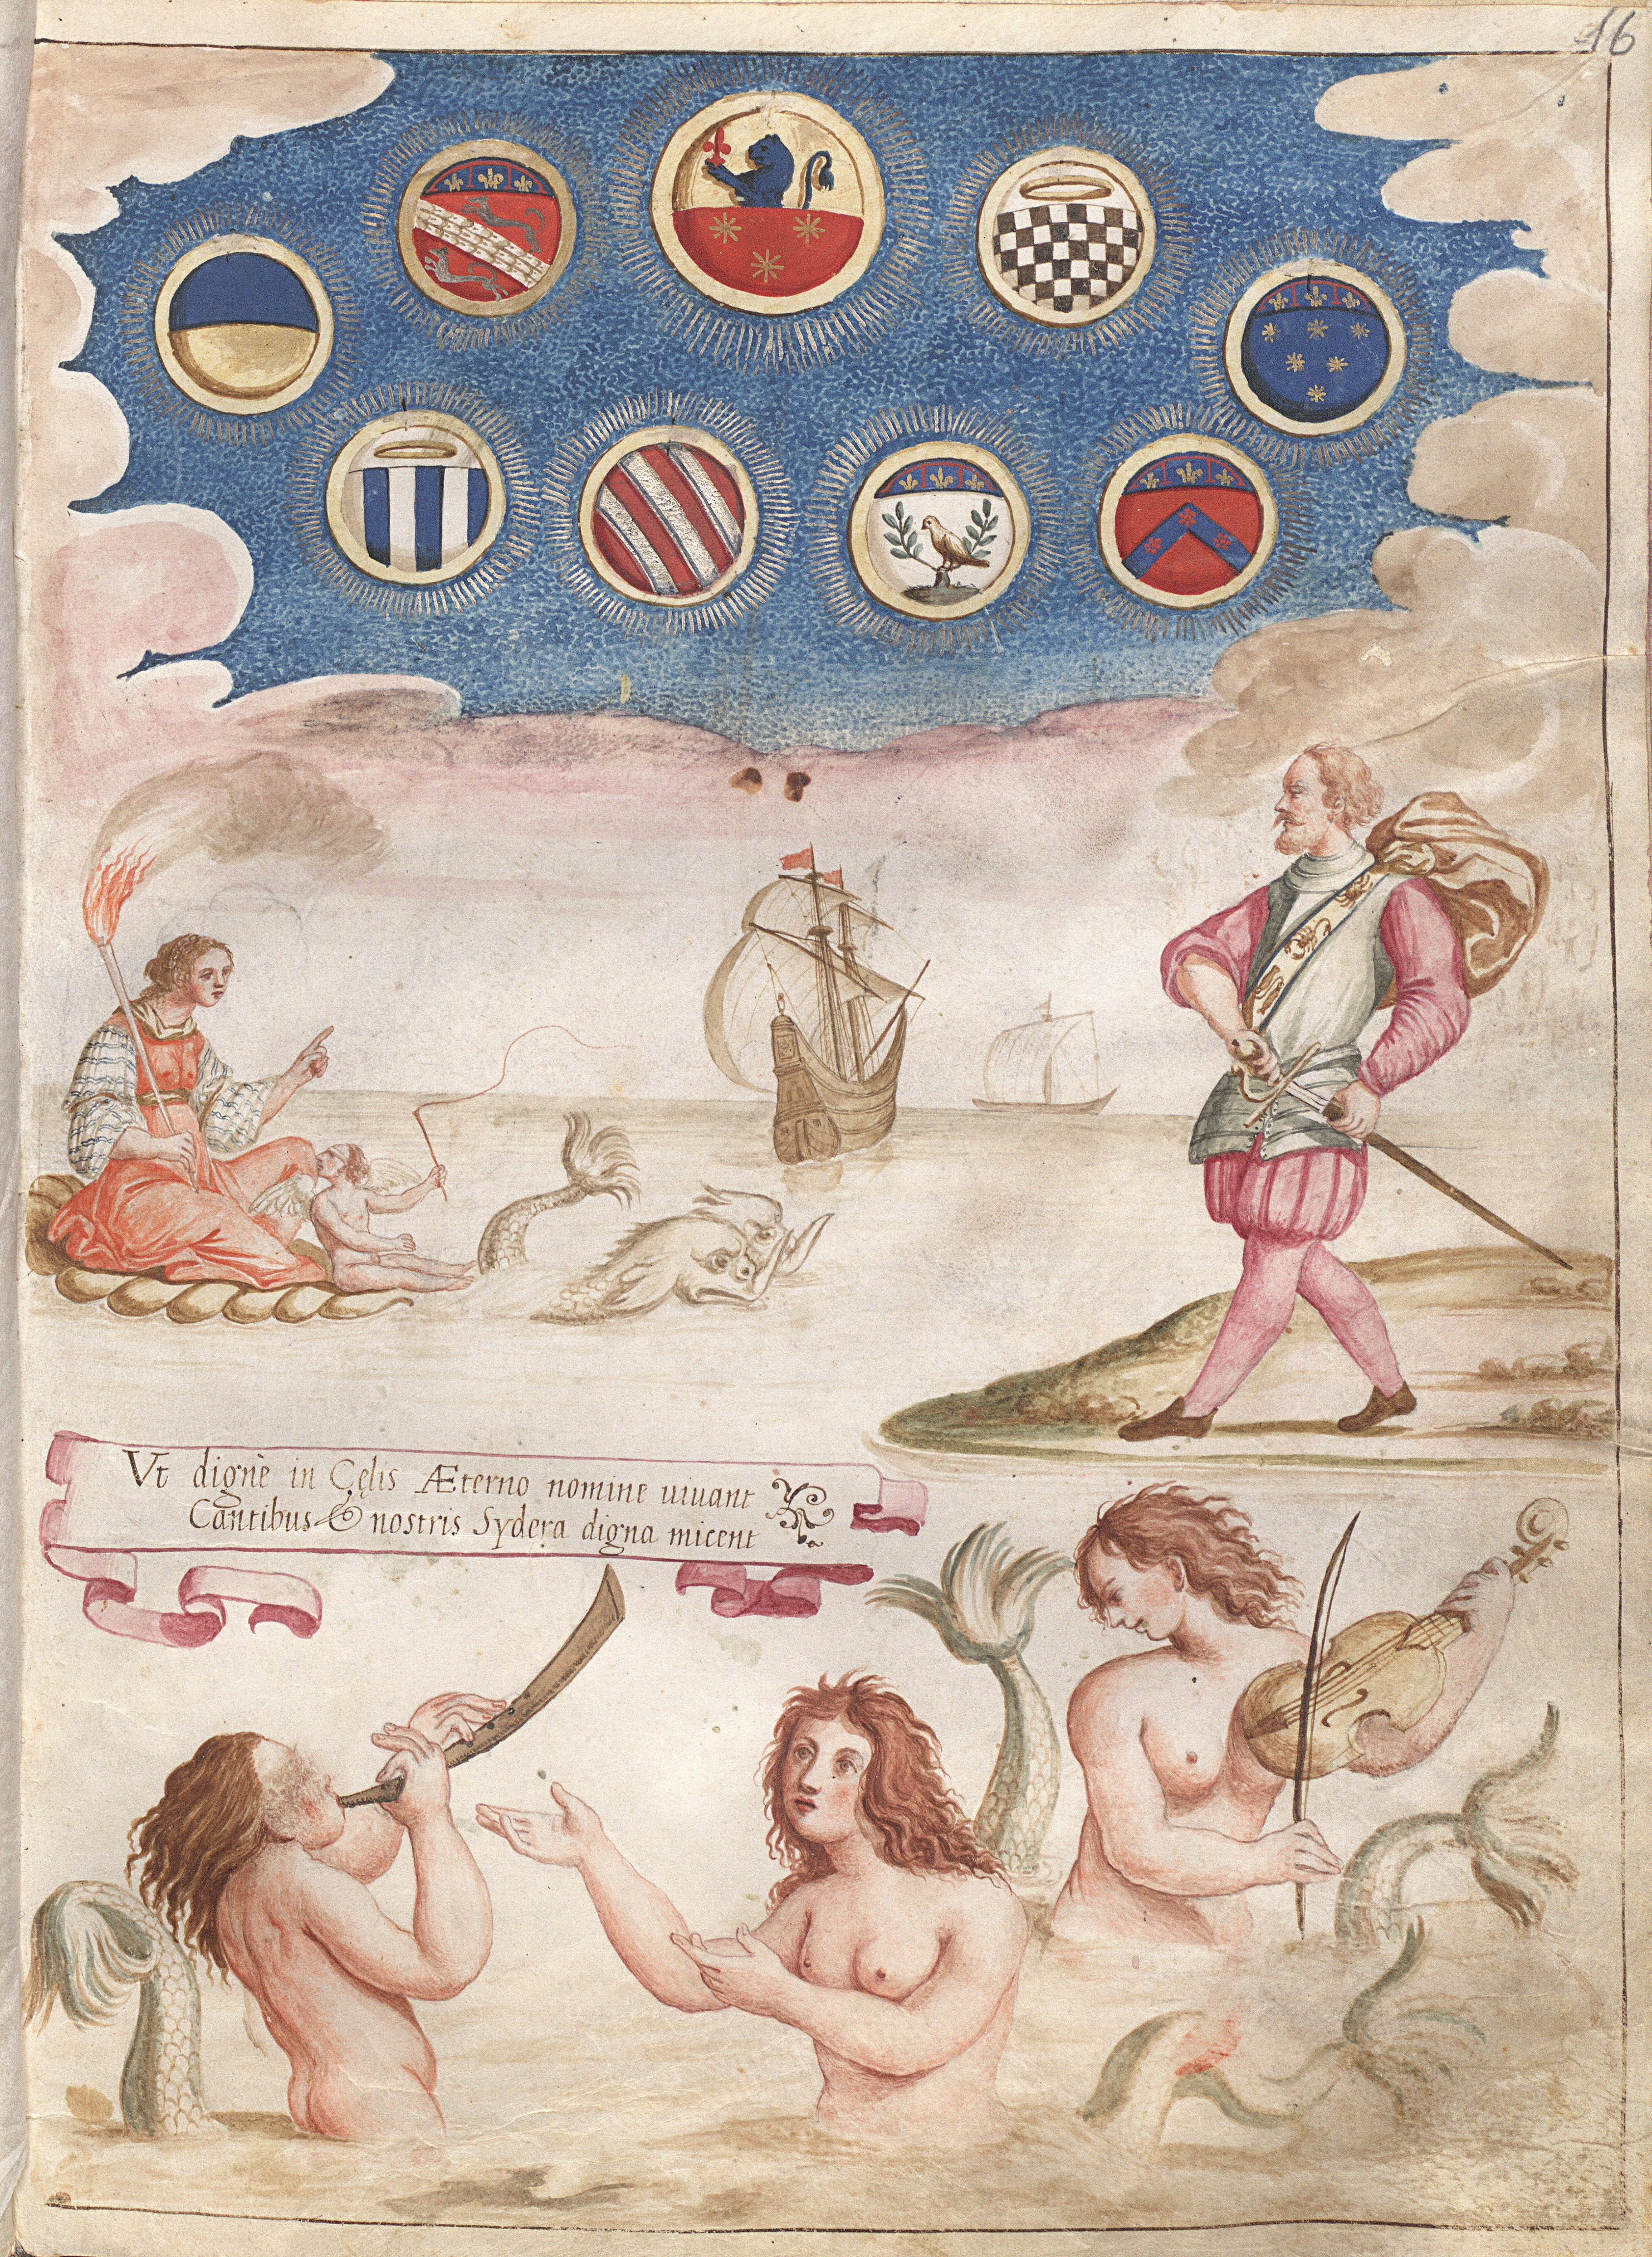 16
Vt dignè in Cęlis Æterno nomine uiuant
Cantibus & nostris Sydera digna micent